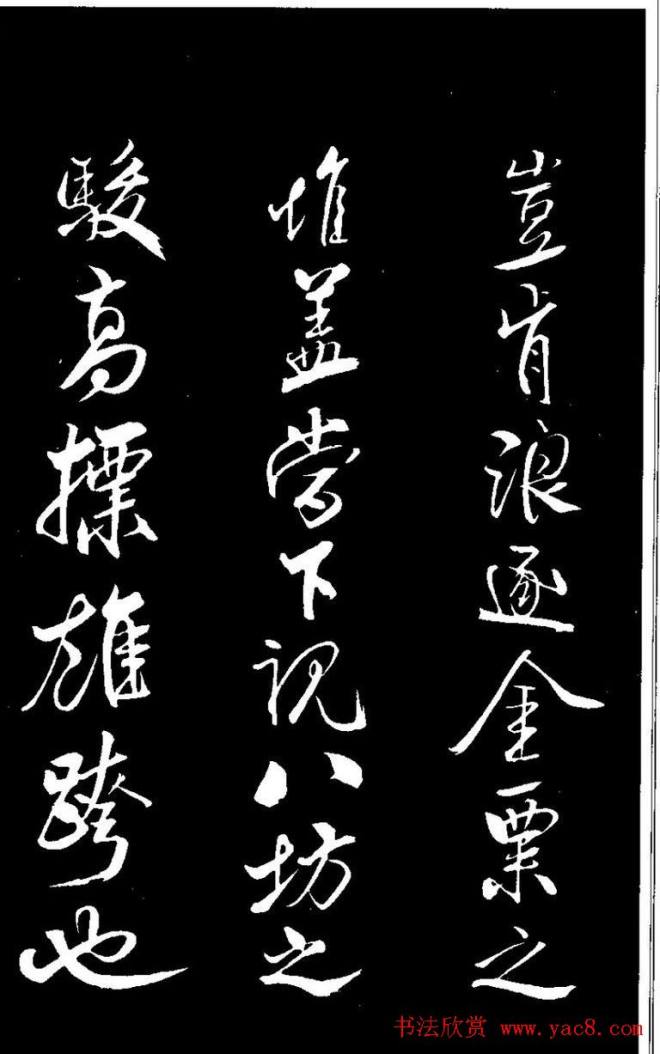 豈肯浪逐金粟之
堆盖當下視八坊之
駿高摽雄跨也
书法欣赏 www.yac8.com